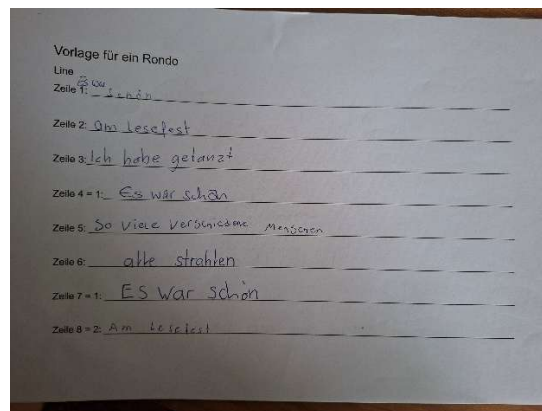 Vorlage für ein Rondo
Line
Zeile 1: Es war schön
Zeile 2: am Lesefest
Zeile 3: Ich habe getanzt
Zeile 4 = 1: Es war schön
Zeile 5: So viele verschiedene Menschen
Zeile 6: alle strahlen
Zeile 7 = 1: ES war schön
Zeile 8 = 2: Am Lesefest